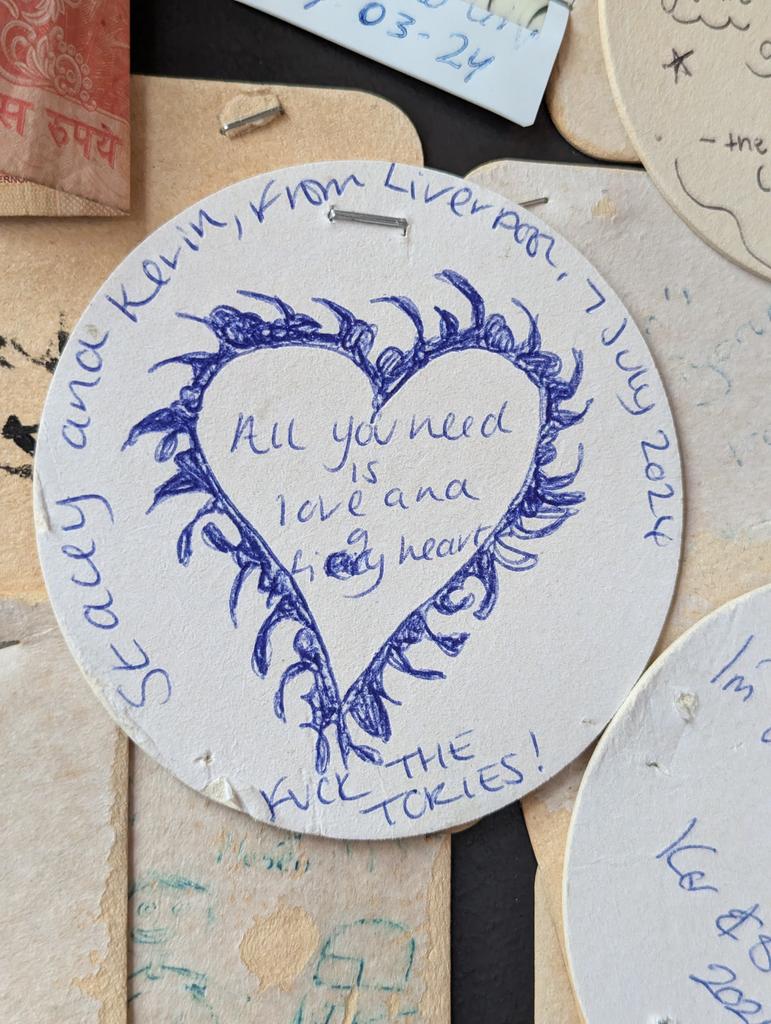 03-24
स रुपये
- the
Stacey and Kevin, from Liverpool, 7 July 2024
All you need
is
love and
a
fiery heart
FUCK THE
TORIES!
I'm